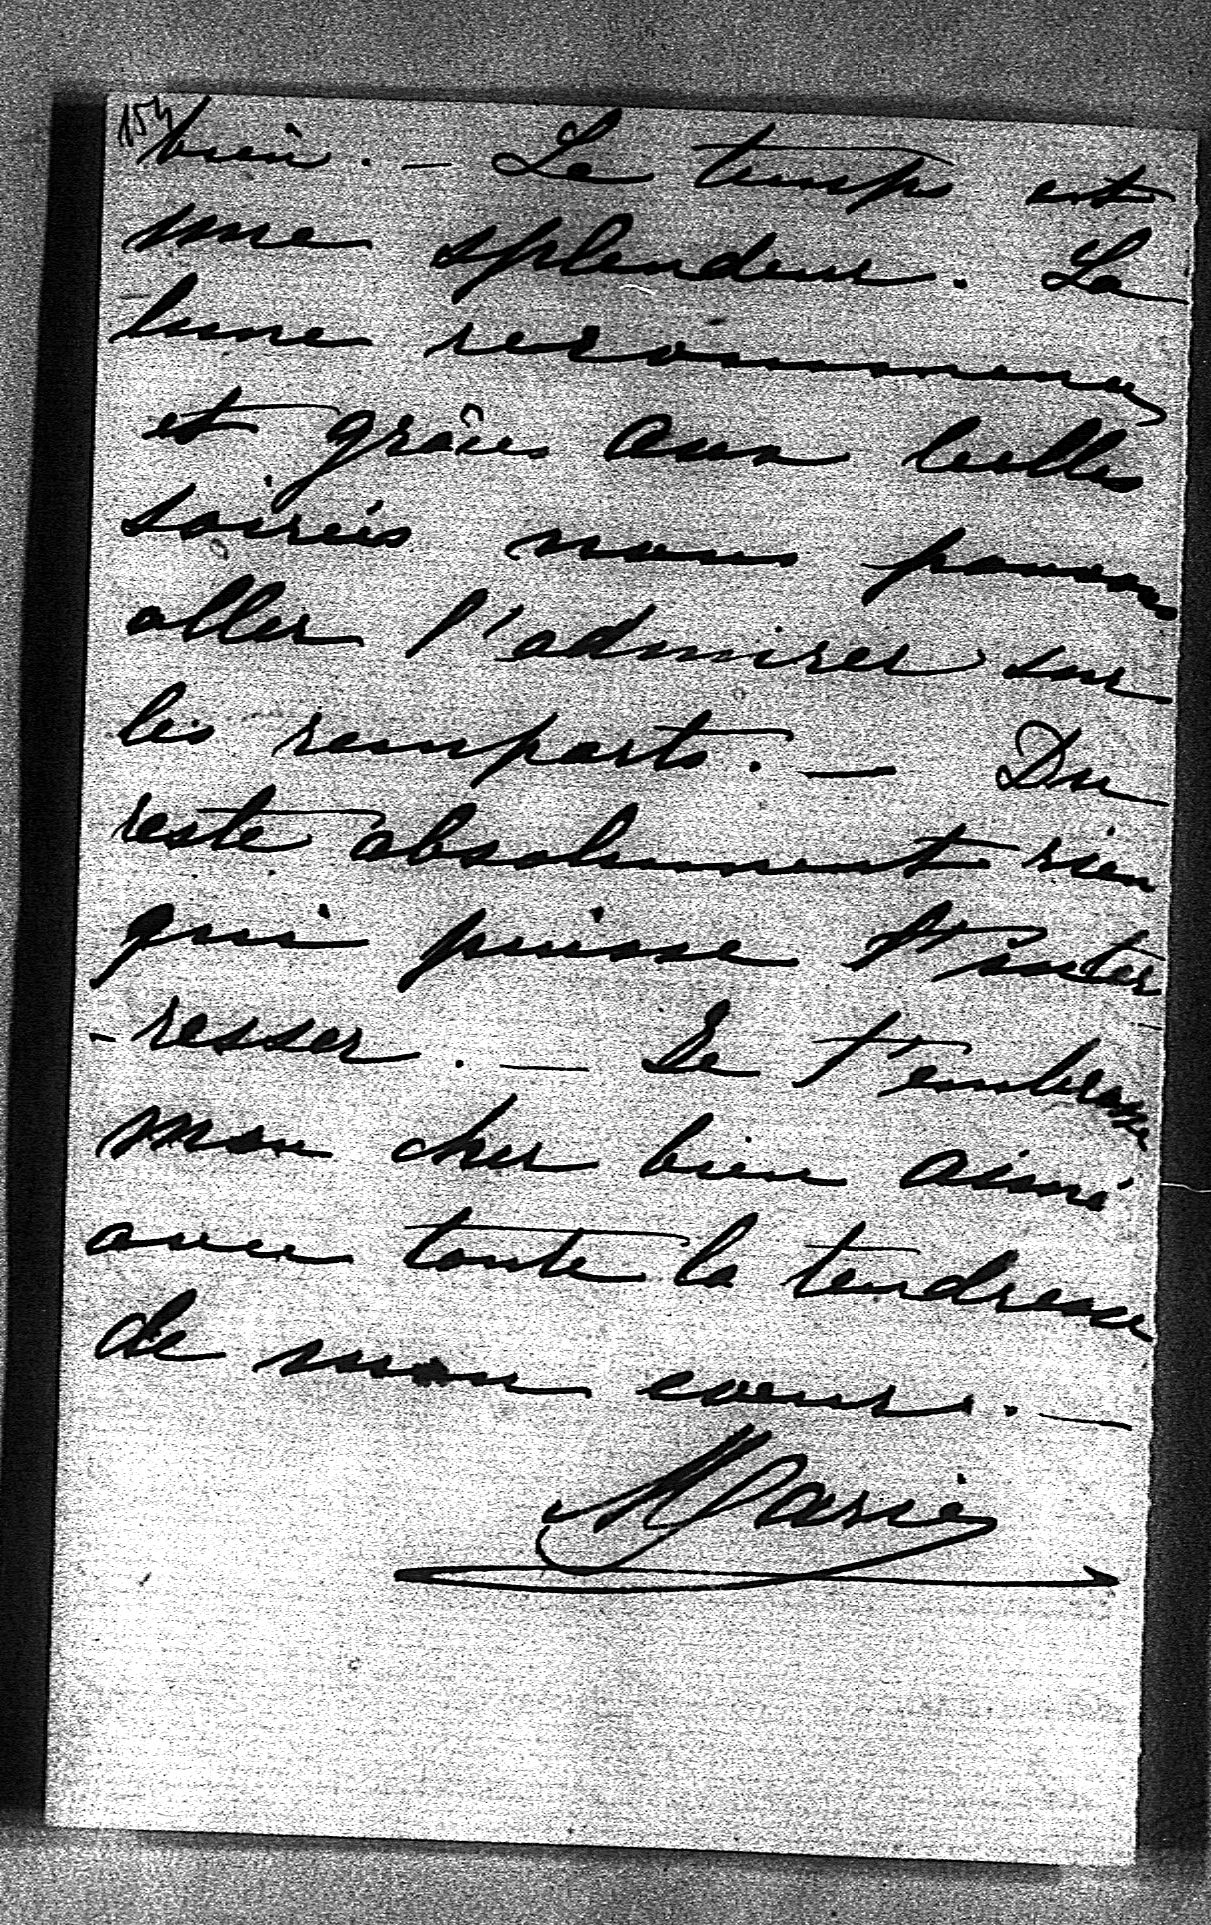 154
bien. — Le temps est
une splendeur. La
lune recommence
et grâces aux belles
soirées nous pouvons
aller l'admirer sur
les remparts. — Du
reste absolument rien
qui puisse t'inter
-resser. — Je t'embrasse
mon cher bien aimé
avec toute la tendresse
de mon coeur. —
Marie